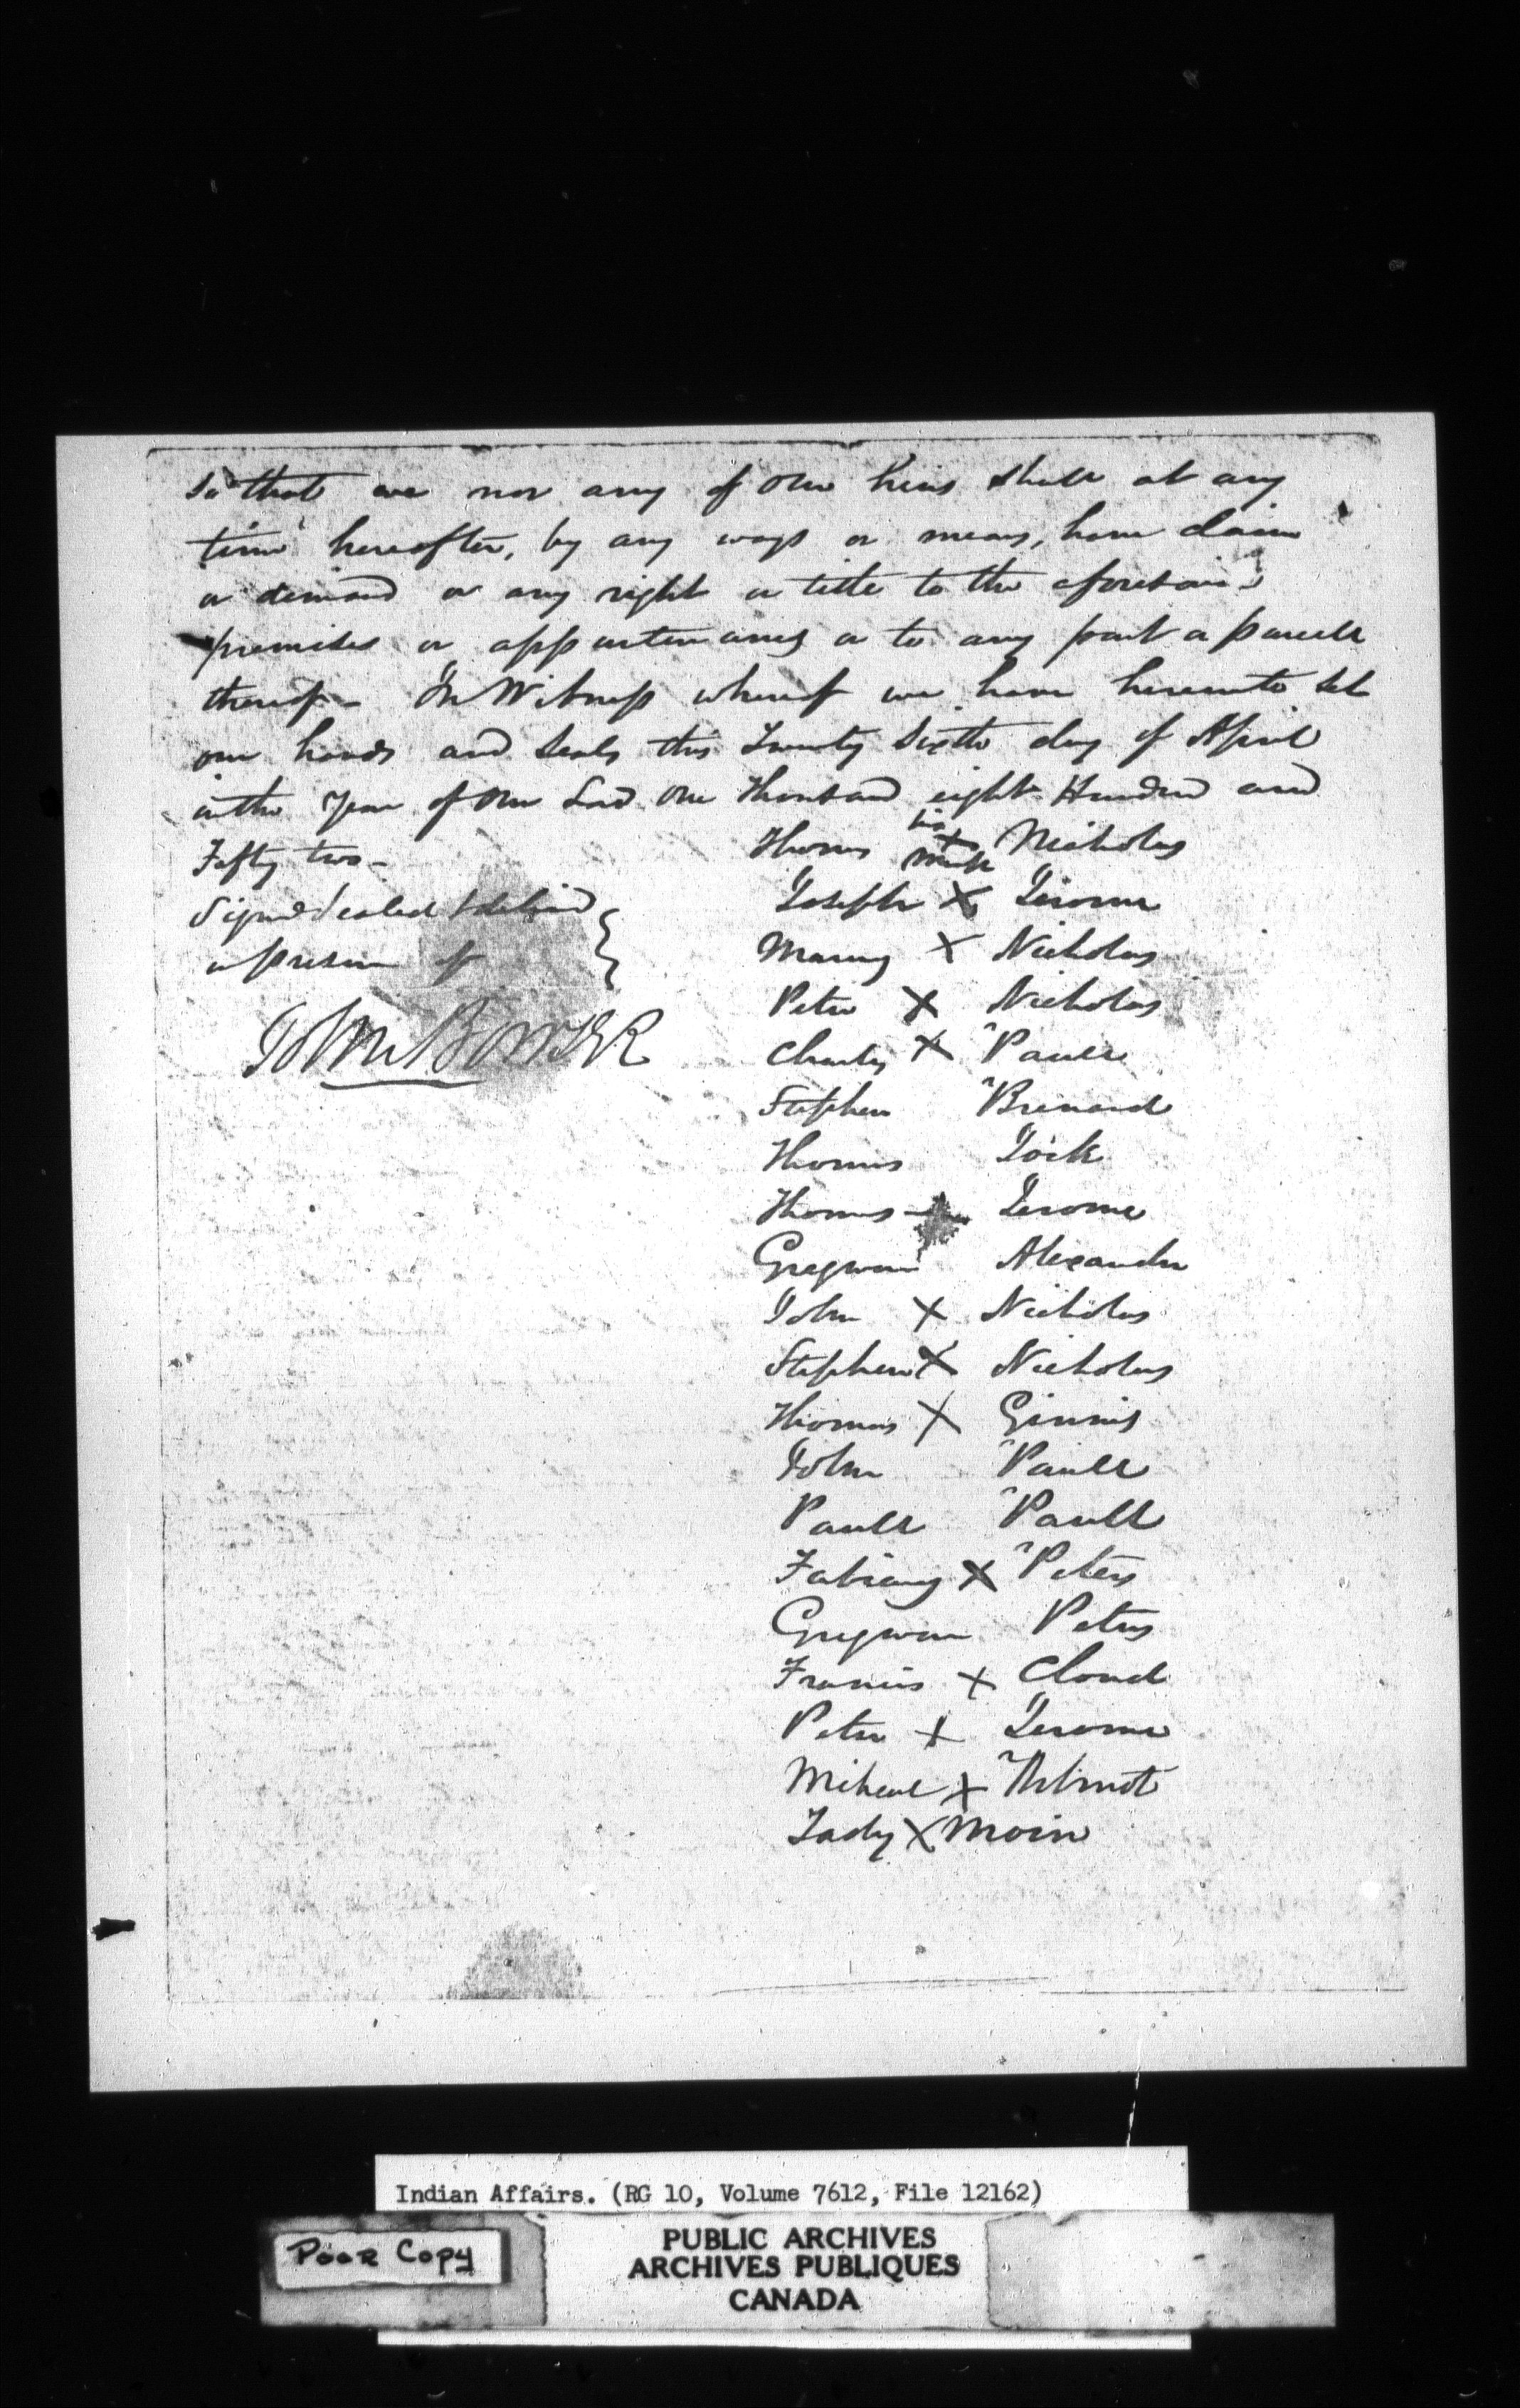 So that we nor any of our Heirs shall at any
time hereafter, by any ways or means, have claim
or demand or any right or title to the aforesaid
premises or appurtenances or to any part or parcell
thereof - In Witness whereof we have hereunto set
our hands and Seals this Twenty Sixth day of April
in the Year of Our Lord One Thousand eight Hundred and
Fifty two -
Signed Sealed & delivd
in presence of
John Bower
Thomas his X mark Nicholas
Joseph X Jerome
X Nicholas
Peter X Nicholas
Charly X Paull
Stephen Brenard
Thomas
Thomas Jerome
Gregwau Alexander
John X Nicholas
Stephen X Nicholas
Thomas X Ginnis
John Paull
Paull Paull
Fabiang X Peters
Gregwau Peters
Francis X Cloud
Peter X Jerome
Micheal X
X Moin
Indian Affairs. (RG 10, Volume 7612, File 12162)
Poor Copy
PUBLIC ARCHIVES
ARCHIVES PUBLIQUES
CANADA